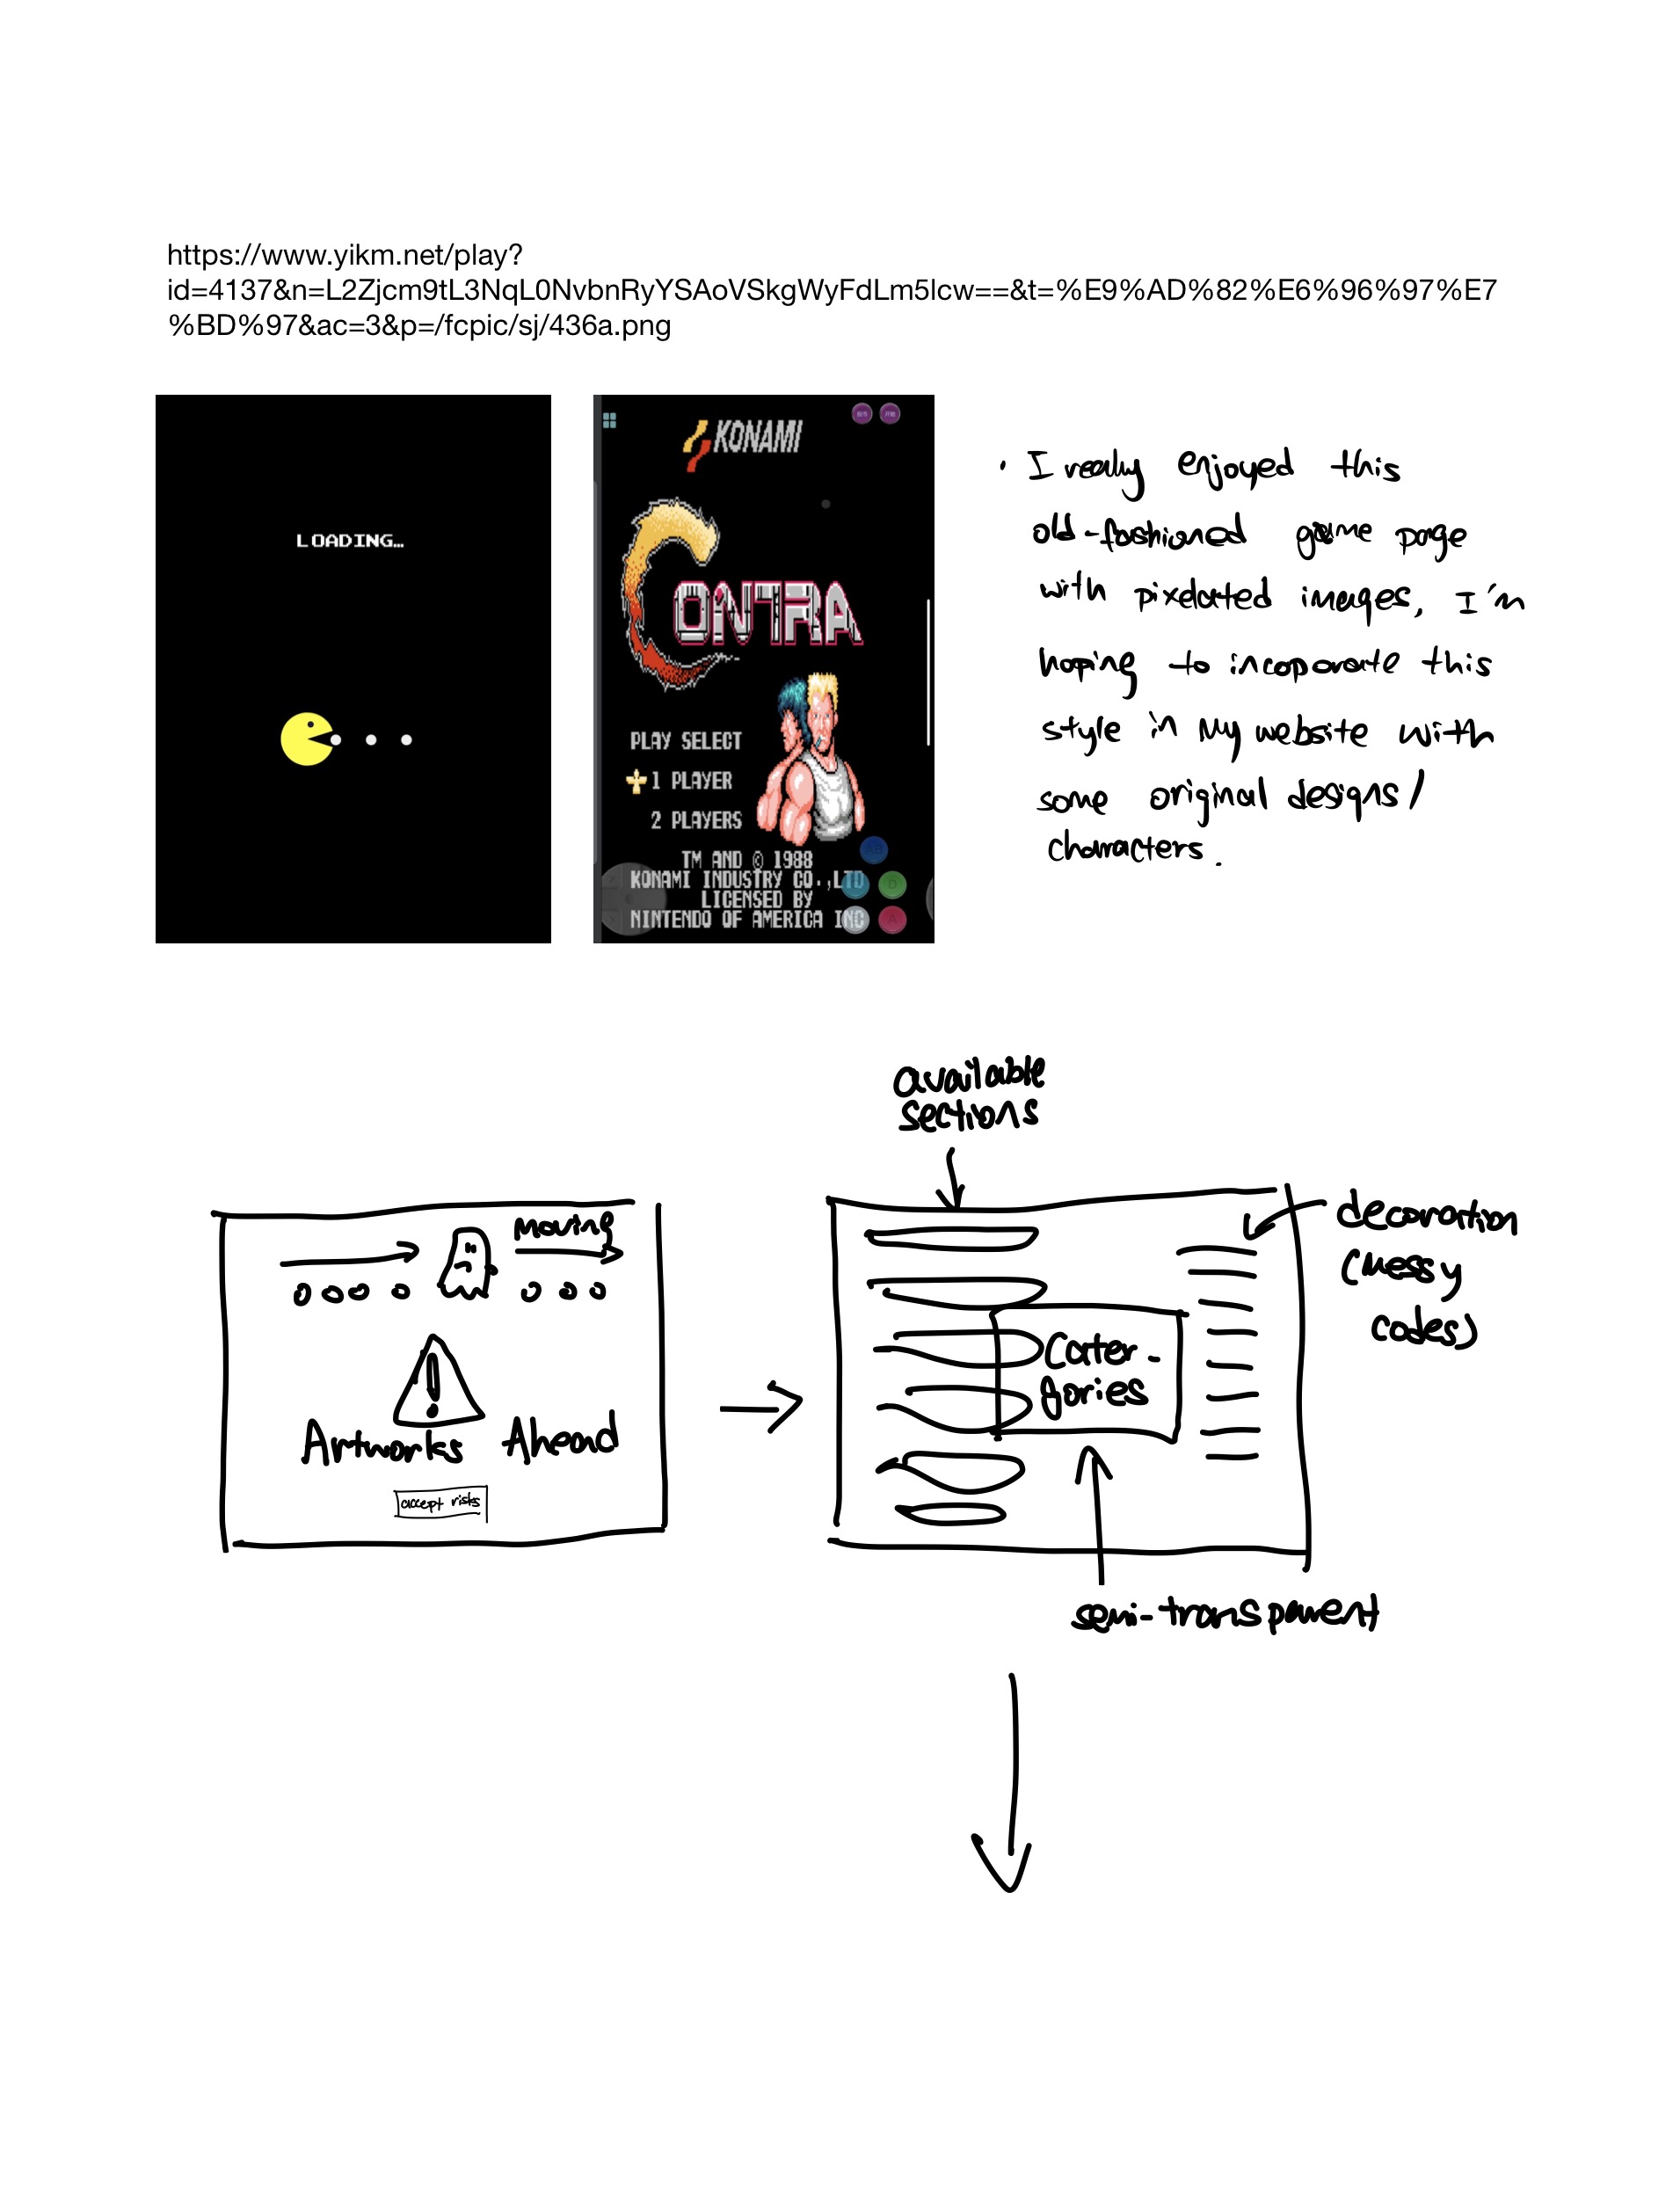 https://www.yikm.net/play?
id=4137&n=L2Zjcm9tL3NqL0NvbnRyYSAoVSkgWyFdLm5lcw==&t=%E9%AD%82%E6%96%97%E7
%BD%97&ac=3&p=/fcpic/sj/436a.png
LOADING...
KONAMI
CONTRA
PLAY SELECT
1 PLAYER
2 PLAYERS
TM AND © 1988
KONAMI INDUSTRY CO.,LTD
LICENSED BY
NINTENDO OF AMERICA INC
D
A
· I really enjoyed this
old-fashioned game page
with pixelated images, I'm
hoping to incoporate this
style in my website with
some original designs/
characters.
moving
!
Artworks Ahead
accept risks
available
sections
Cater-
gories
decoration
(messy
codes)
semi-transparent